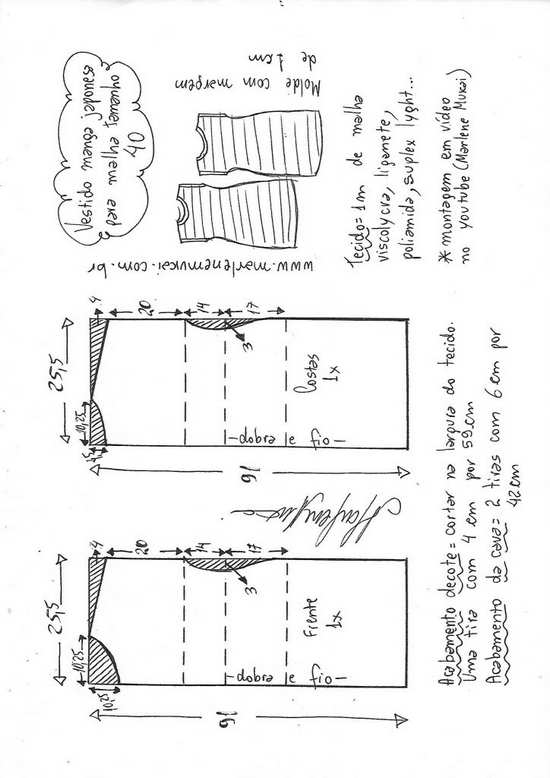 Vestido manga japonesa
para malha tamanho
40
Molde com margem
de 1 cm
www.marlenemukai.com.br
Tecido= 1m de malha
viscolycra, liganete,
poliamida, suplex lyght...
* montagem em vídeo
no youtube (Marlene Mukai)
25,5
10,25
10,25
4
20
14
17
3
91
Frente
1x
-fio e dobra-
25,5
10,25
4
20
14
17
3
91
Costas
1x
-fio e dobra-
Acabamento decote= cortar na largura do tecido.
Uma tira com 4 cm por 59cm
Acabamento da cava= 2 tiras com 6 cm por
42cm